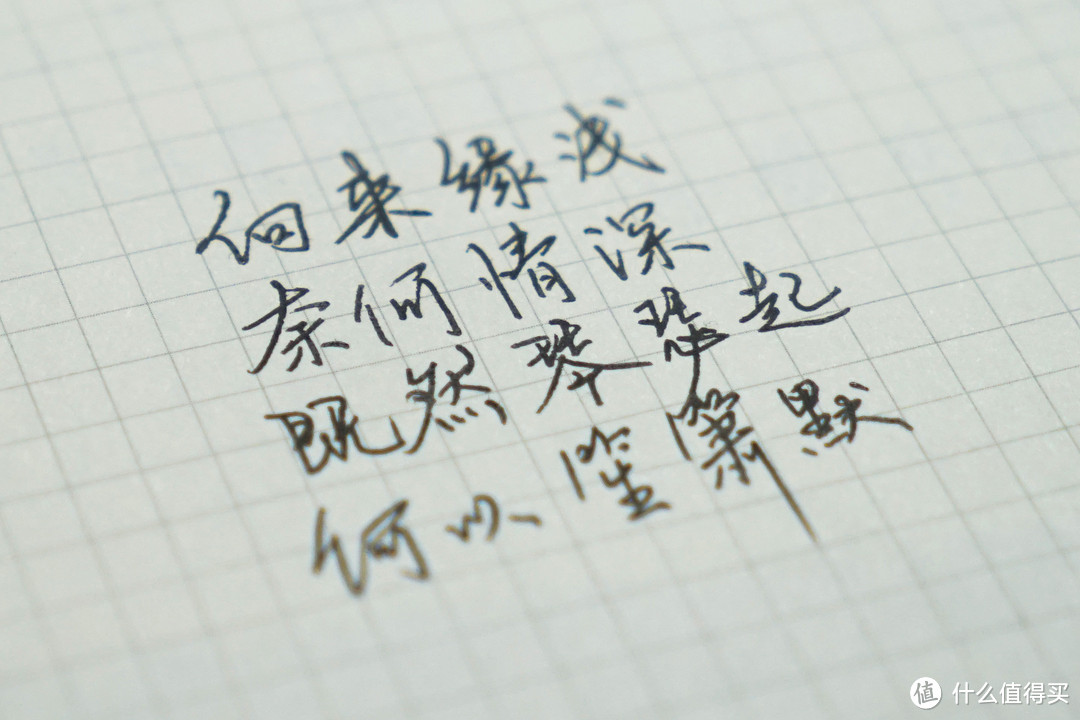 向来缘浅
奈何情深
既然琴瑟起
何以笙箫默
值 什么值得买